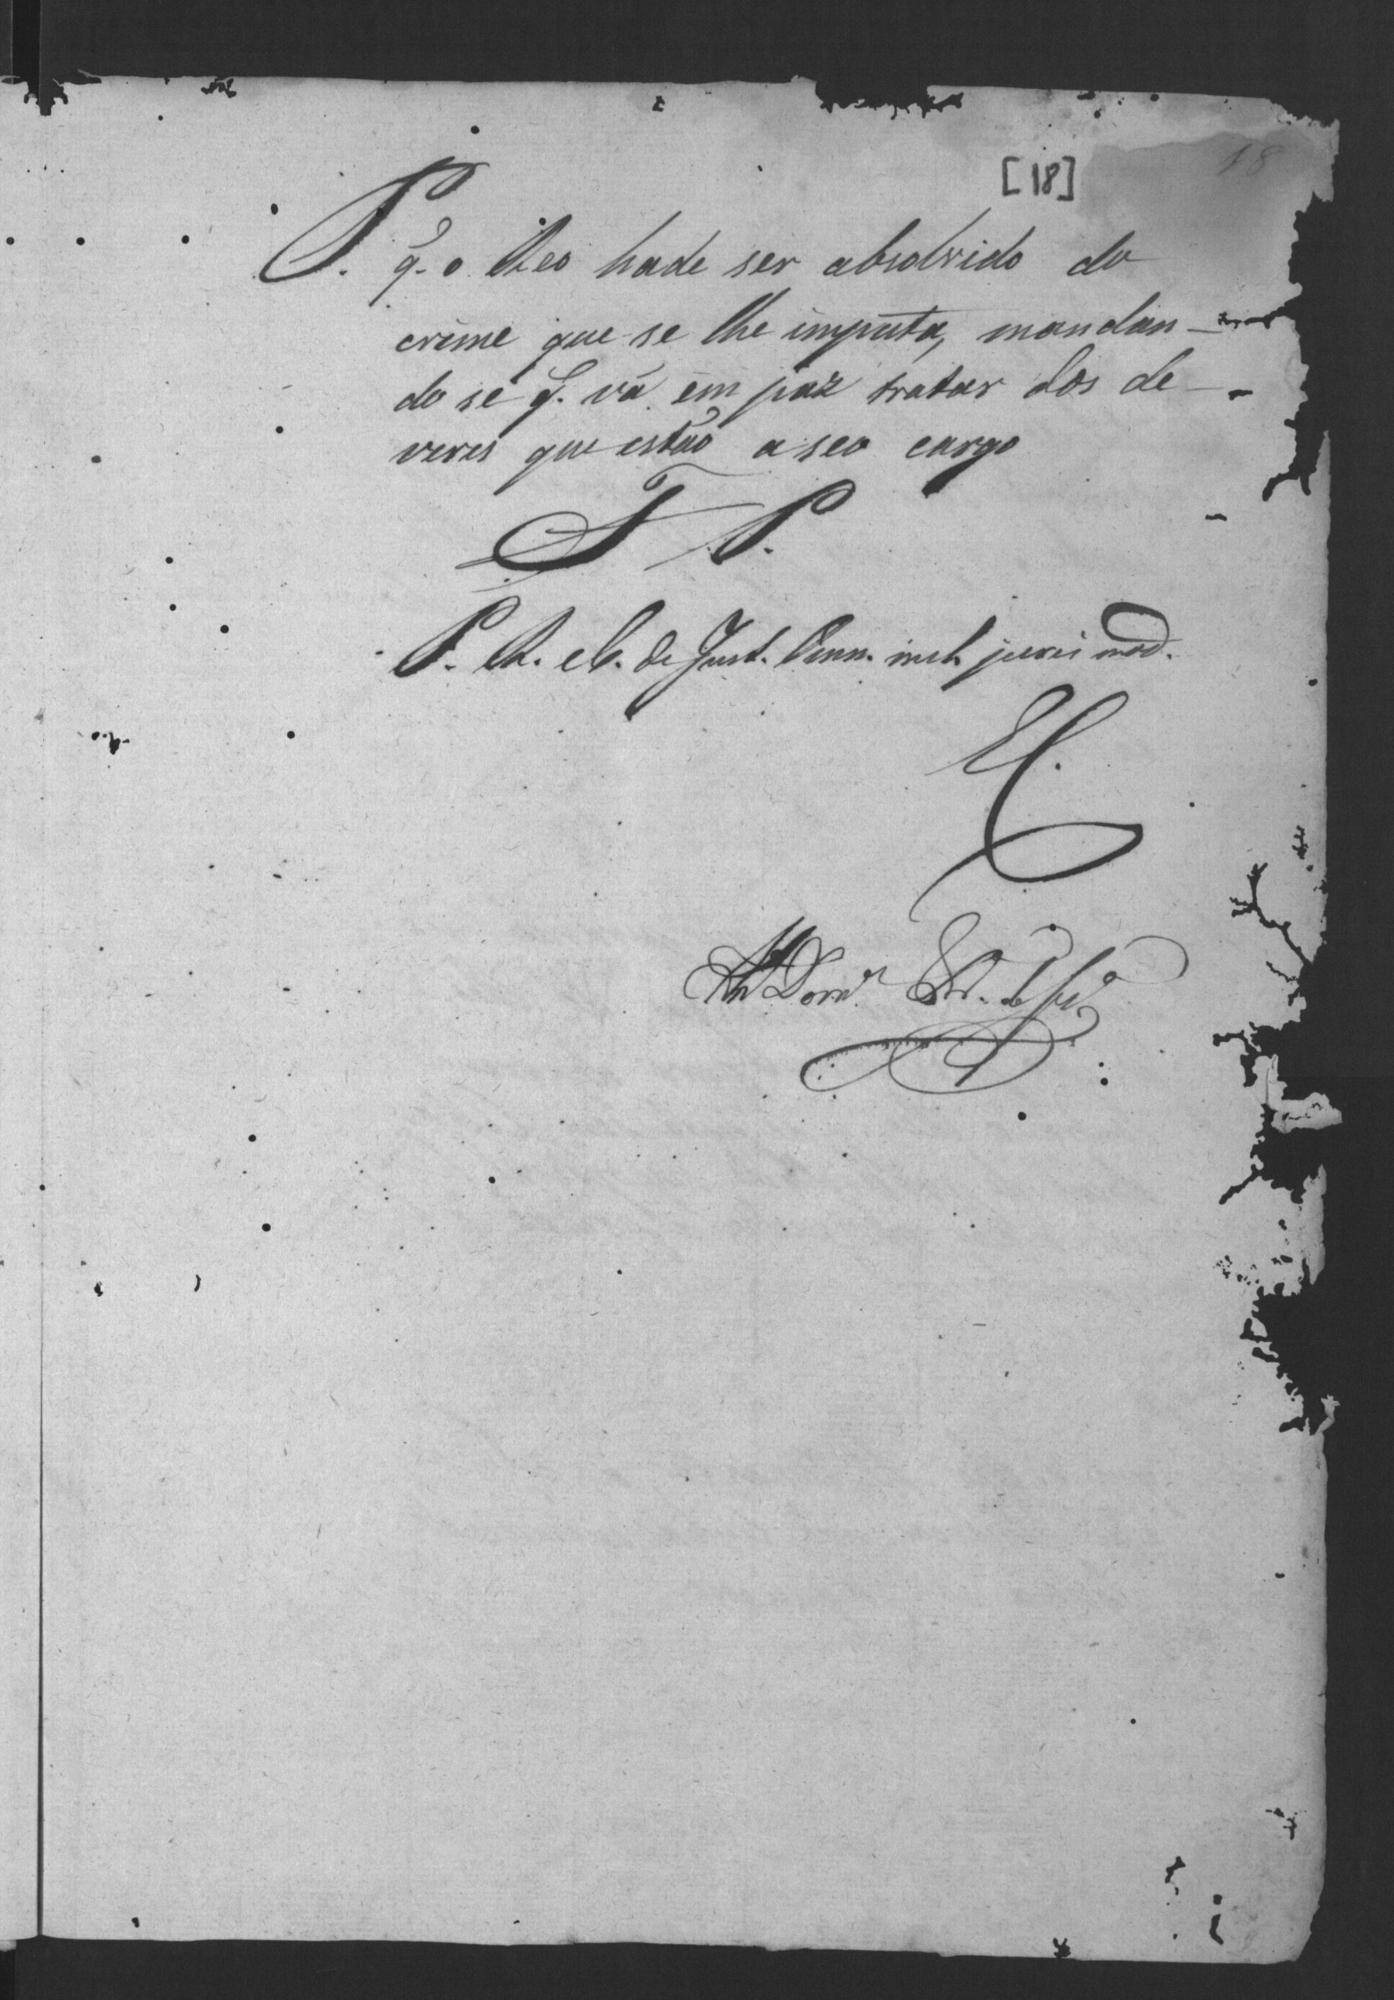 18
[18]
P. q. o Reo hade ser absolvido do
crime que se lhe imputa, mandan-
do se q. vá em paz tratar dos de-
veres que estão a seo cargo
F P.
P. R. e C. de Just. Omn. mel. juris mod.
E C.